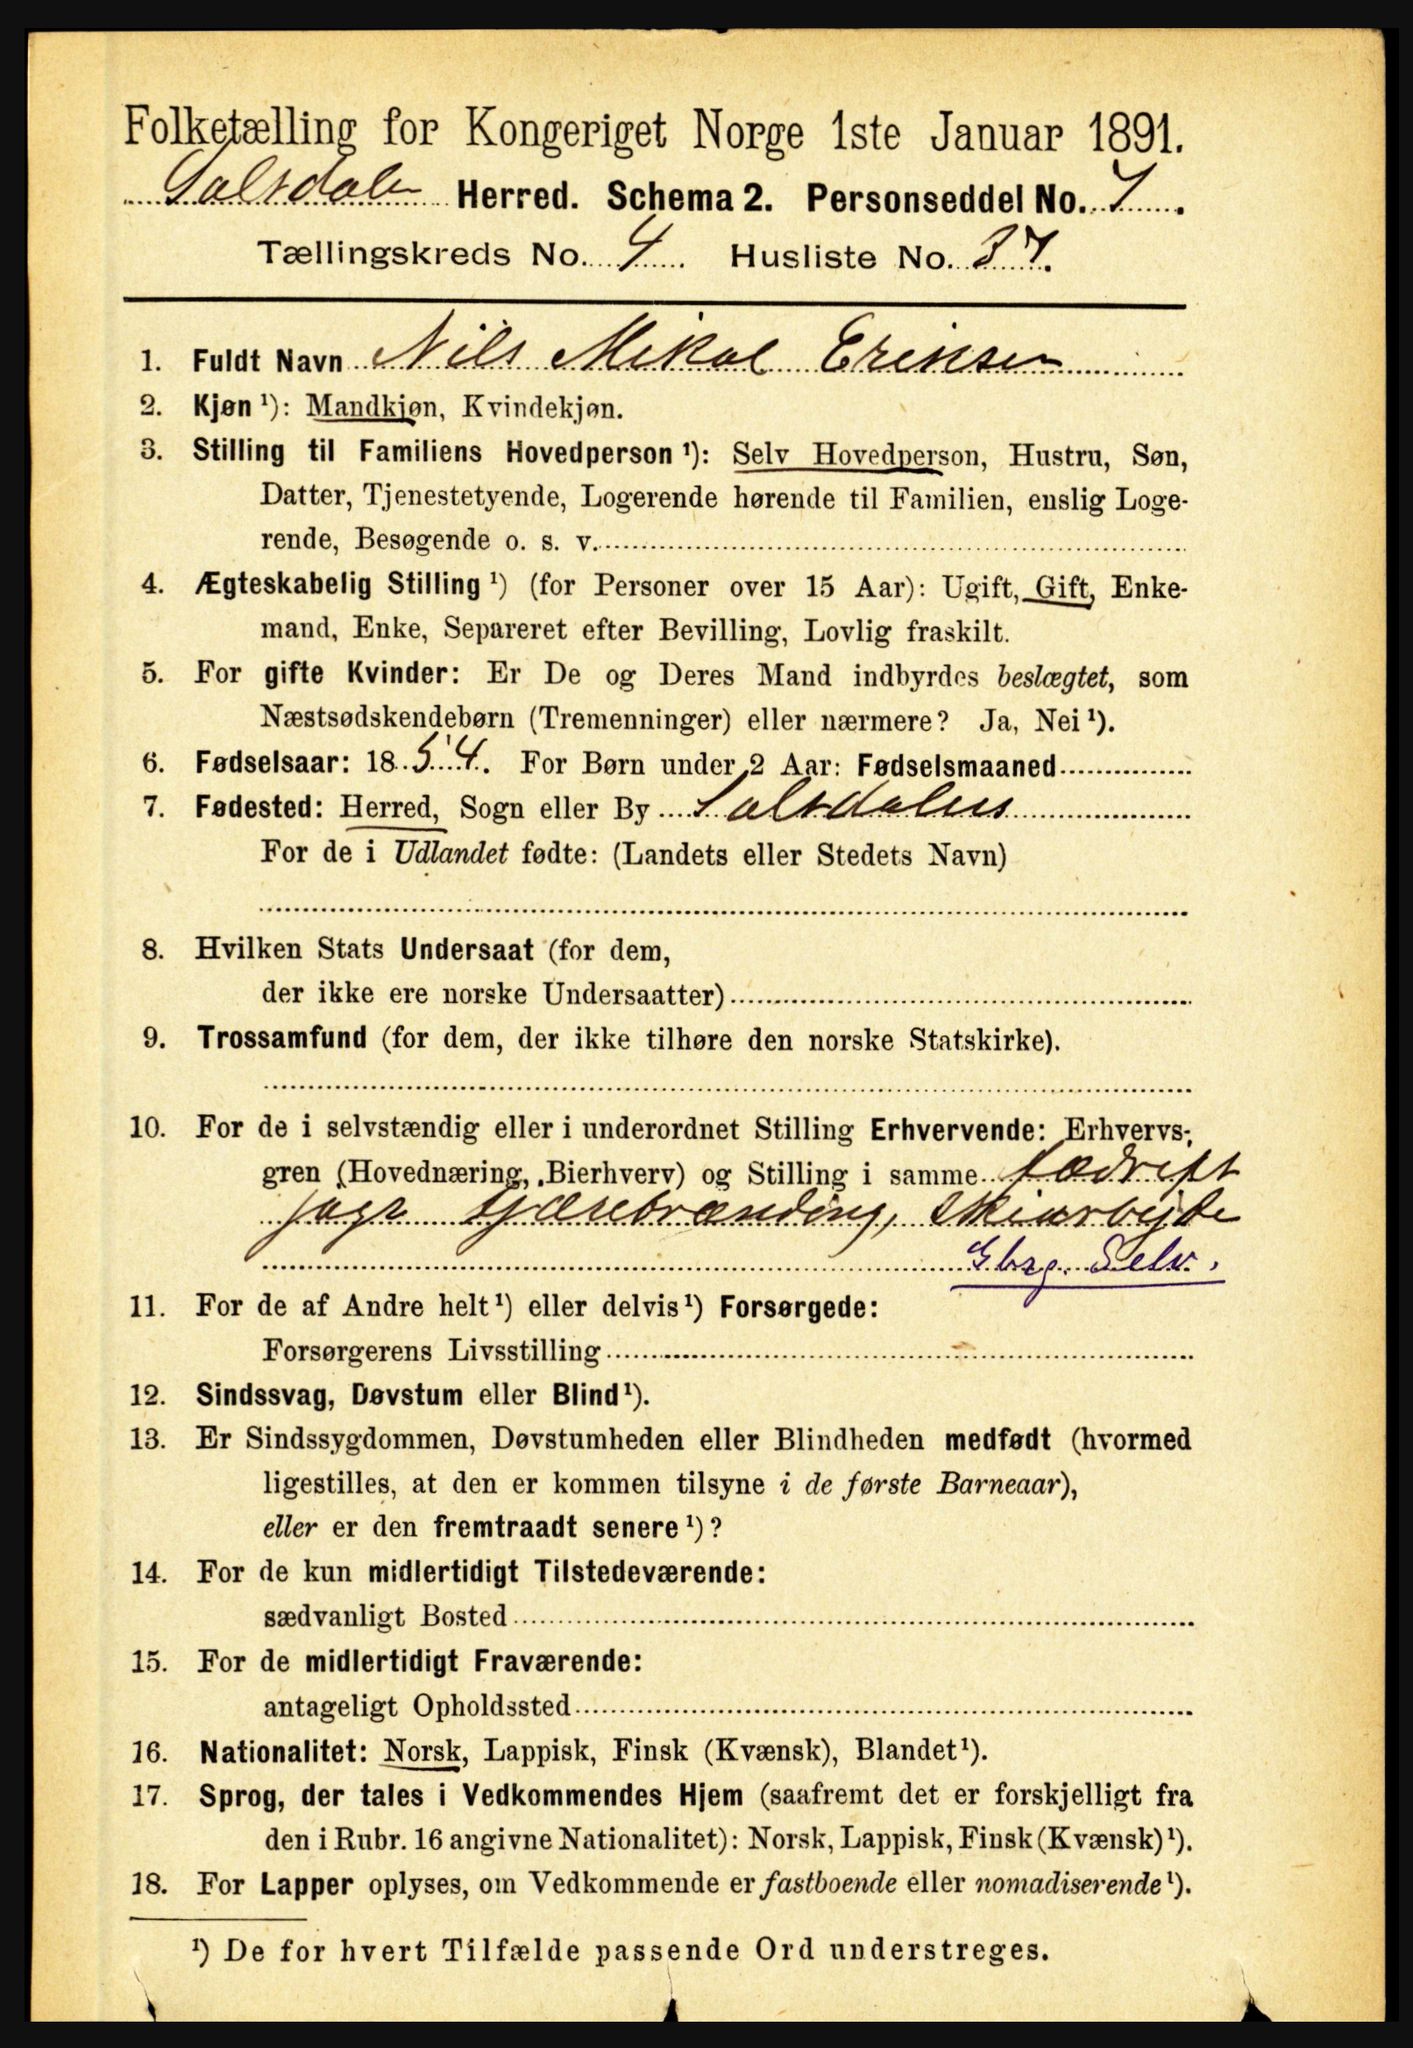 Folketælling for Kongeriget Norge 1ste Januar 1891.
Saltdalen Herred. Schema 2. Personseddel No. 1.
Tællingskreds No. 4. Husliste No. 37.
1. Fuldt Navn Nils Mikal Eriksen
2. Kjøn ¹): Mandkjøn, Kvindekjøn.
3. Stilling til Familiens Hovedperson ¹): Selv Hovedperson, Hustru, Søn,
Datter, Tjenestetyende, Logerende hørende til Familien, enslig Loge-
rende, Besøgende o. s. v.
4. Ægteskabelig Stilling ¹) (for Personer over 15 Aar): Ugift, Gift, Enke-
mand, Enke, Separeret efter Bevilling, Lovlig fraskilt.
5. For gifte Kvinder: Er De og Deres Mand indbyrdes beslægtet, som
Næstsødskendebørn (Tremenninger) eller nærmere? Ja, Nei ¹).
6. Fødselsaar: 1854. For Børn under 2 Aar: Fødselsmaaned
7. Fødested: Herred, Sogn eller By Saltdalens
For de i Udlandet fødte: (Landets eller Stedets Navn)
8. Hvilken Stats Undersaat (for dem,
der ikke ere norske Undersaatter)
9. Trossamfund (for dem, der ikke tilhøre den norske Statskirke).
10. For de i selvstændig eller i underordnet Stilling Erhvervende: Erhvervs-
gren (Hovednæring, Bierhverv) og Stilling i samme fædrift
jagt tjærebrænding, skiarbejde
Gbrg. Selv.
11. For de af Andre helt ¹) eller delvis ¹) Forsørgede:
Forsørgerens Livsstilling
12. Sindssvag, Døvstum eller Blind ¹).
13. Er Sindssygdommen, Døvstumheden eller Blindheden medfødt (hvormed
ligestilles, at den er kommen tilsyne i de første Barneaar),
eller er den fremtraadt senere ¹)?
14. For de kun midlertidigt Tilstedeværende:
sædvanligt Bosted
15. For de midlertidigt Fraværende:
antageligt Opholdssted
16. Nationalitet: Norsk, Lappisk, Finsk (Kvænsk), Blandet ¹).
17. Sprog, der tales i Vedkommendes Hjem (saafremt det er forskjelligt fra
den i Rubr. 16 angivne Nationalitet): Norsk, Lappisk, Finsk (Kvænsk) ¹).
18. For Lapper oplyses, om Vedkommende er fastboende eller nomadiserende ¹).
¹) De for hvert Tilfælde passende Ord understreges.